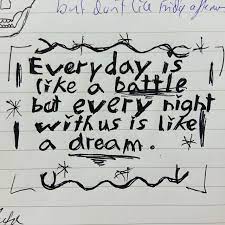 but don't like friday
Everyday is
like a battle
but every night
with us is like
a dream.